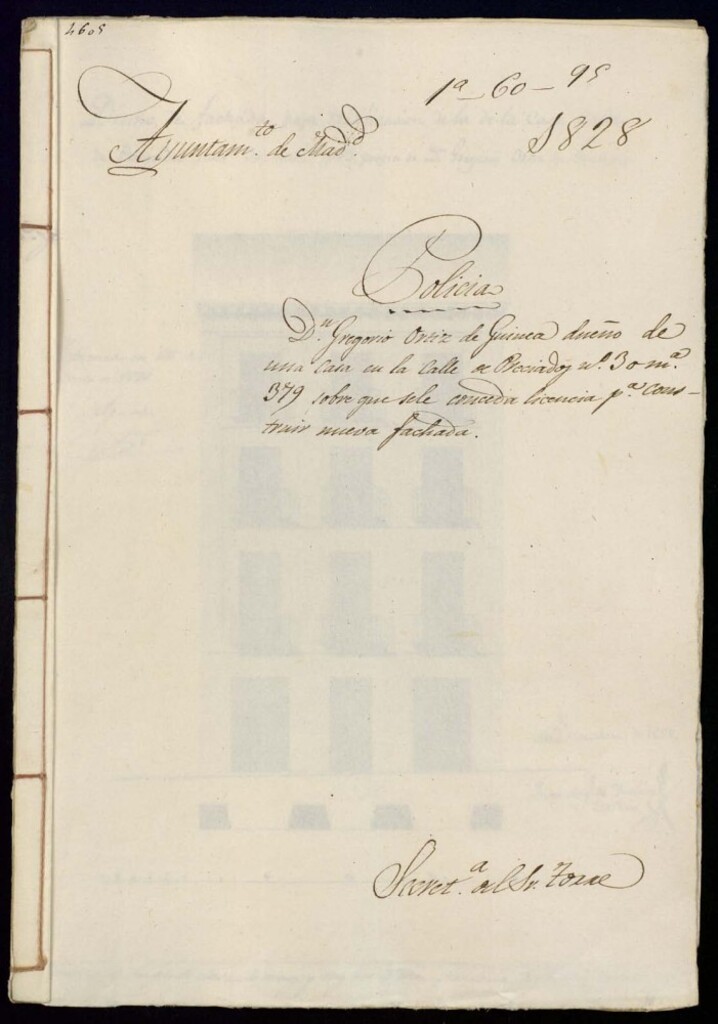 4605
1ª-60-95
Ayuntam.to de Mad.d
1828
Policia
D.n Gregorio Ortiz de Guinea dueño de
una casa en la Calle de Preciados n.º 30 m.ª
379 sobre que sele conceda licencia p.ª cons-
truir nueva fachada.
Secret.ª del Sr.